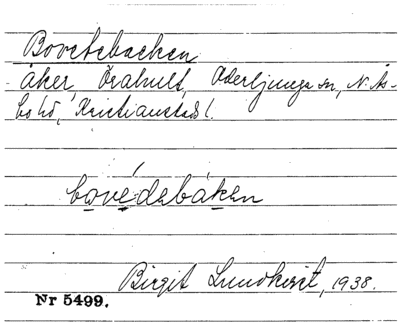 Bovetebacken
åker, Örahult, Oderljunga sn, N. Ås-
bo hd, Kristianstads l.
bovédebáken
Birgit Lundkvist, 1938.
Nr 5499.